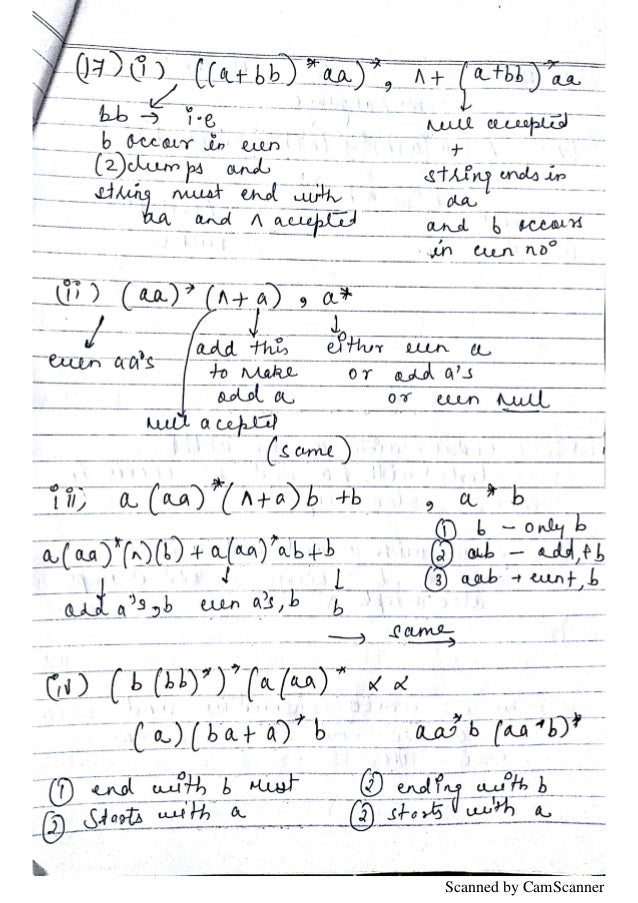 (17) (i) ((a+bb)*aa)*, Λ+ (a+bb)*aa
bb → i.e
b occur in even
(2) clumps and
string must end with
aa and Λ accepted
null accepted
+
string ends in
aa
and b occurs
in even no°
(ii) (aa)* (Λ+a) , a*
even aa's
add this
to make
odd a
null acepted
either even a
or odd a's
or even null
(same)
iii) a (aa)*(Λ+a) b +b , a*b
a(aa)*(Λ)(b) + a(aa)*ab+b
odd a's, b even a's, b b
① b - only b
② ab - odd, +b
③ aab + even +, b
→ same
(iv) (b (bb)*)*(a (aa)*
(a) (ba+a)*b aa*b (aa*b)*
① end with b must
② Starts with a
② ending with b
② starts with a
Scanned by CamScanner